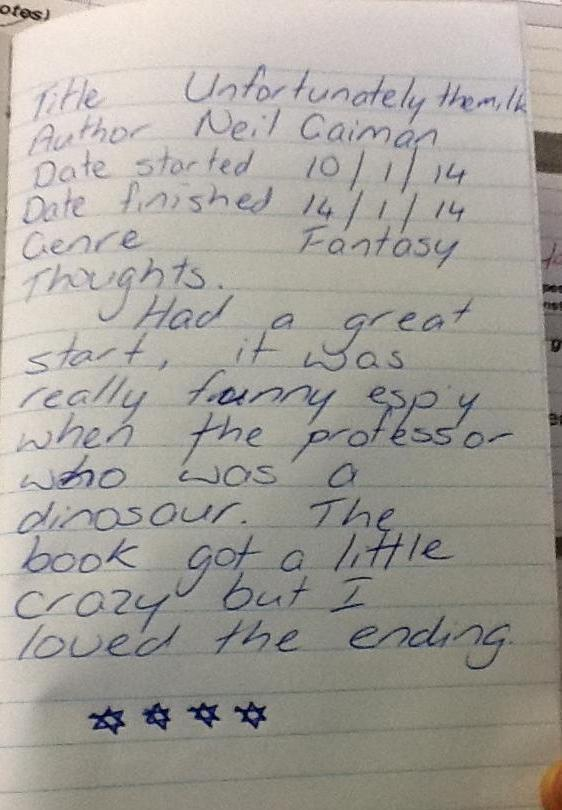 otes)
Title Unfortunately the milk
Author Neil Gaiman
Date started 10/1/14
Date finished 14/1/14
Genre Fantasy
Thoughts.
Had a great
start, it was
really funny esp'y
when the professor
who was a
dinosaur. The
book got a little
crazy but I
loved the ending.